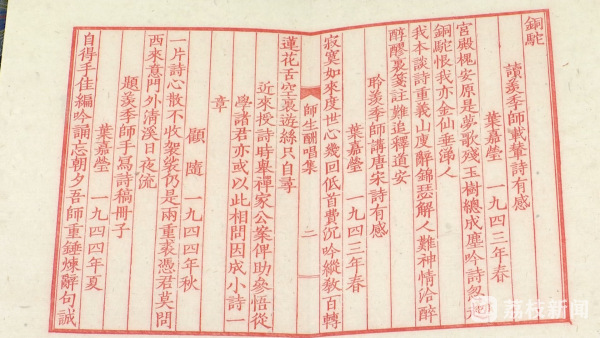 銅駝
讀羨季師載輦詩有感
葉嘉瑩 一九四三年春
宮殿槐安原是夢歌殘玉樹總成塵吟詩忽起
銅駝恨我亦金仙垂涕人
我本談詩重義山廋辭錦瑟解人難神情洽醉
醇醪裏箋註難追釋道安
聆羨季師講唐宋詩有感
葉嘉瑩 一九四三年春
寂寞如來度世心幾回低首費沉吟縱教百轉
師生酬唱集 二
蓮花舌空裏遊絲只自尋
近來授詩時舉禪家公案俾助參悟從
學諸君亦或以此相問因成小詩一
章
顧隨 一九四四年秋
一片詩心散不收袈裟仍是兩重裘憑君莫問
西來意門外清溪日夜流
題羨季師手寫詩稿冊子
葉嘉瑩 一九四四年夏
自得手佳編吟誦忘朝夕吾師重錘煉辭句誠
荔枝新闻